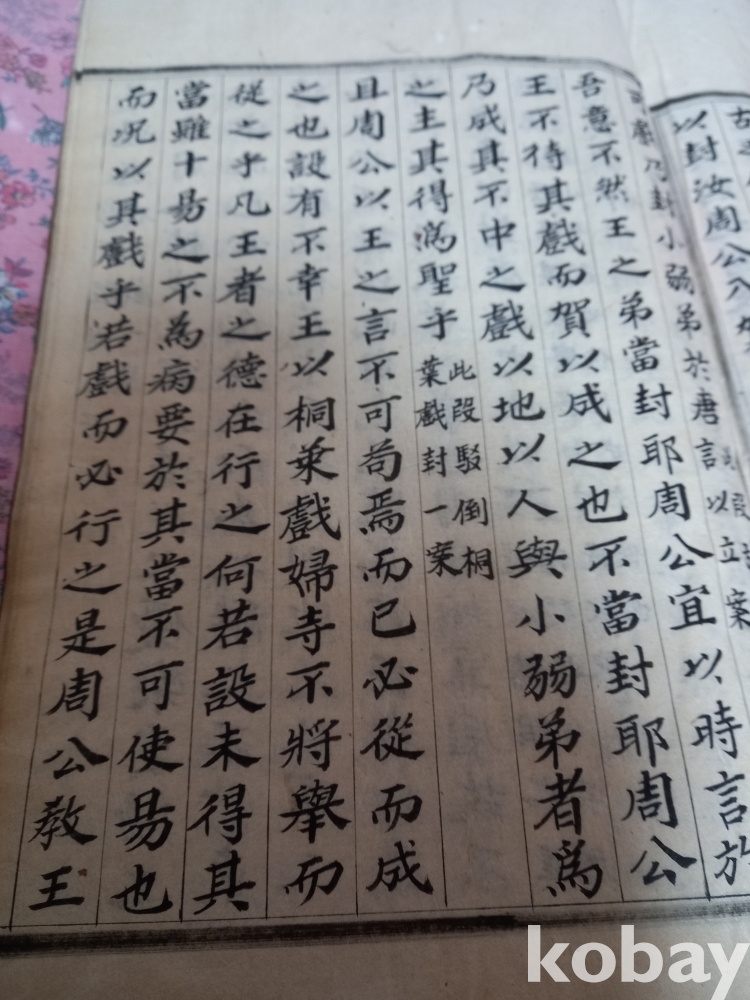 以封汝周公入
戲乃封小弱弟於唐
以立案
吾意不然王之弟當封耶周公宜以時言於
王不待其戲而賀以成之也不當封耶周公
乃成其不中之戲以地以人與小弱弟者為
之主其得為聖乎
此段駁倒桐
葉戲封一案
且周公以王之言不可苟焉而已必從而成
之也設有不幸王以桐桒戲婦寺不將舉而
從之乎凡王者之德在行之何若設未得其
當雖十易之不為病要於其當不可使易也
而况以其戲乎若戲而必行之是周公教王
kobay